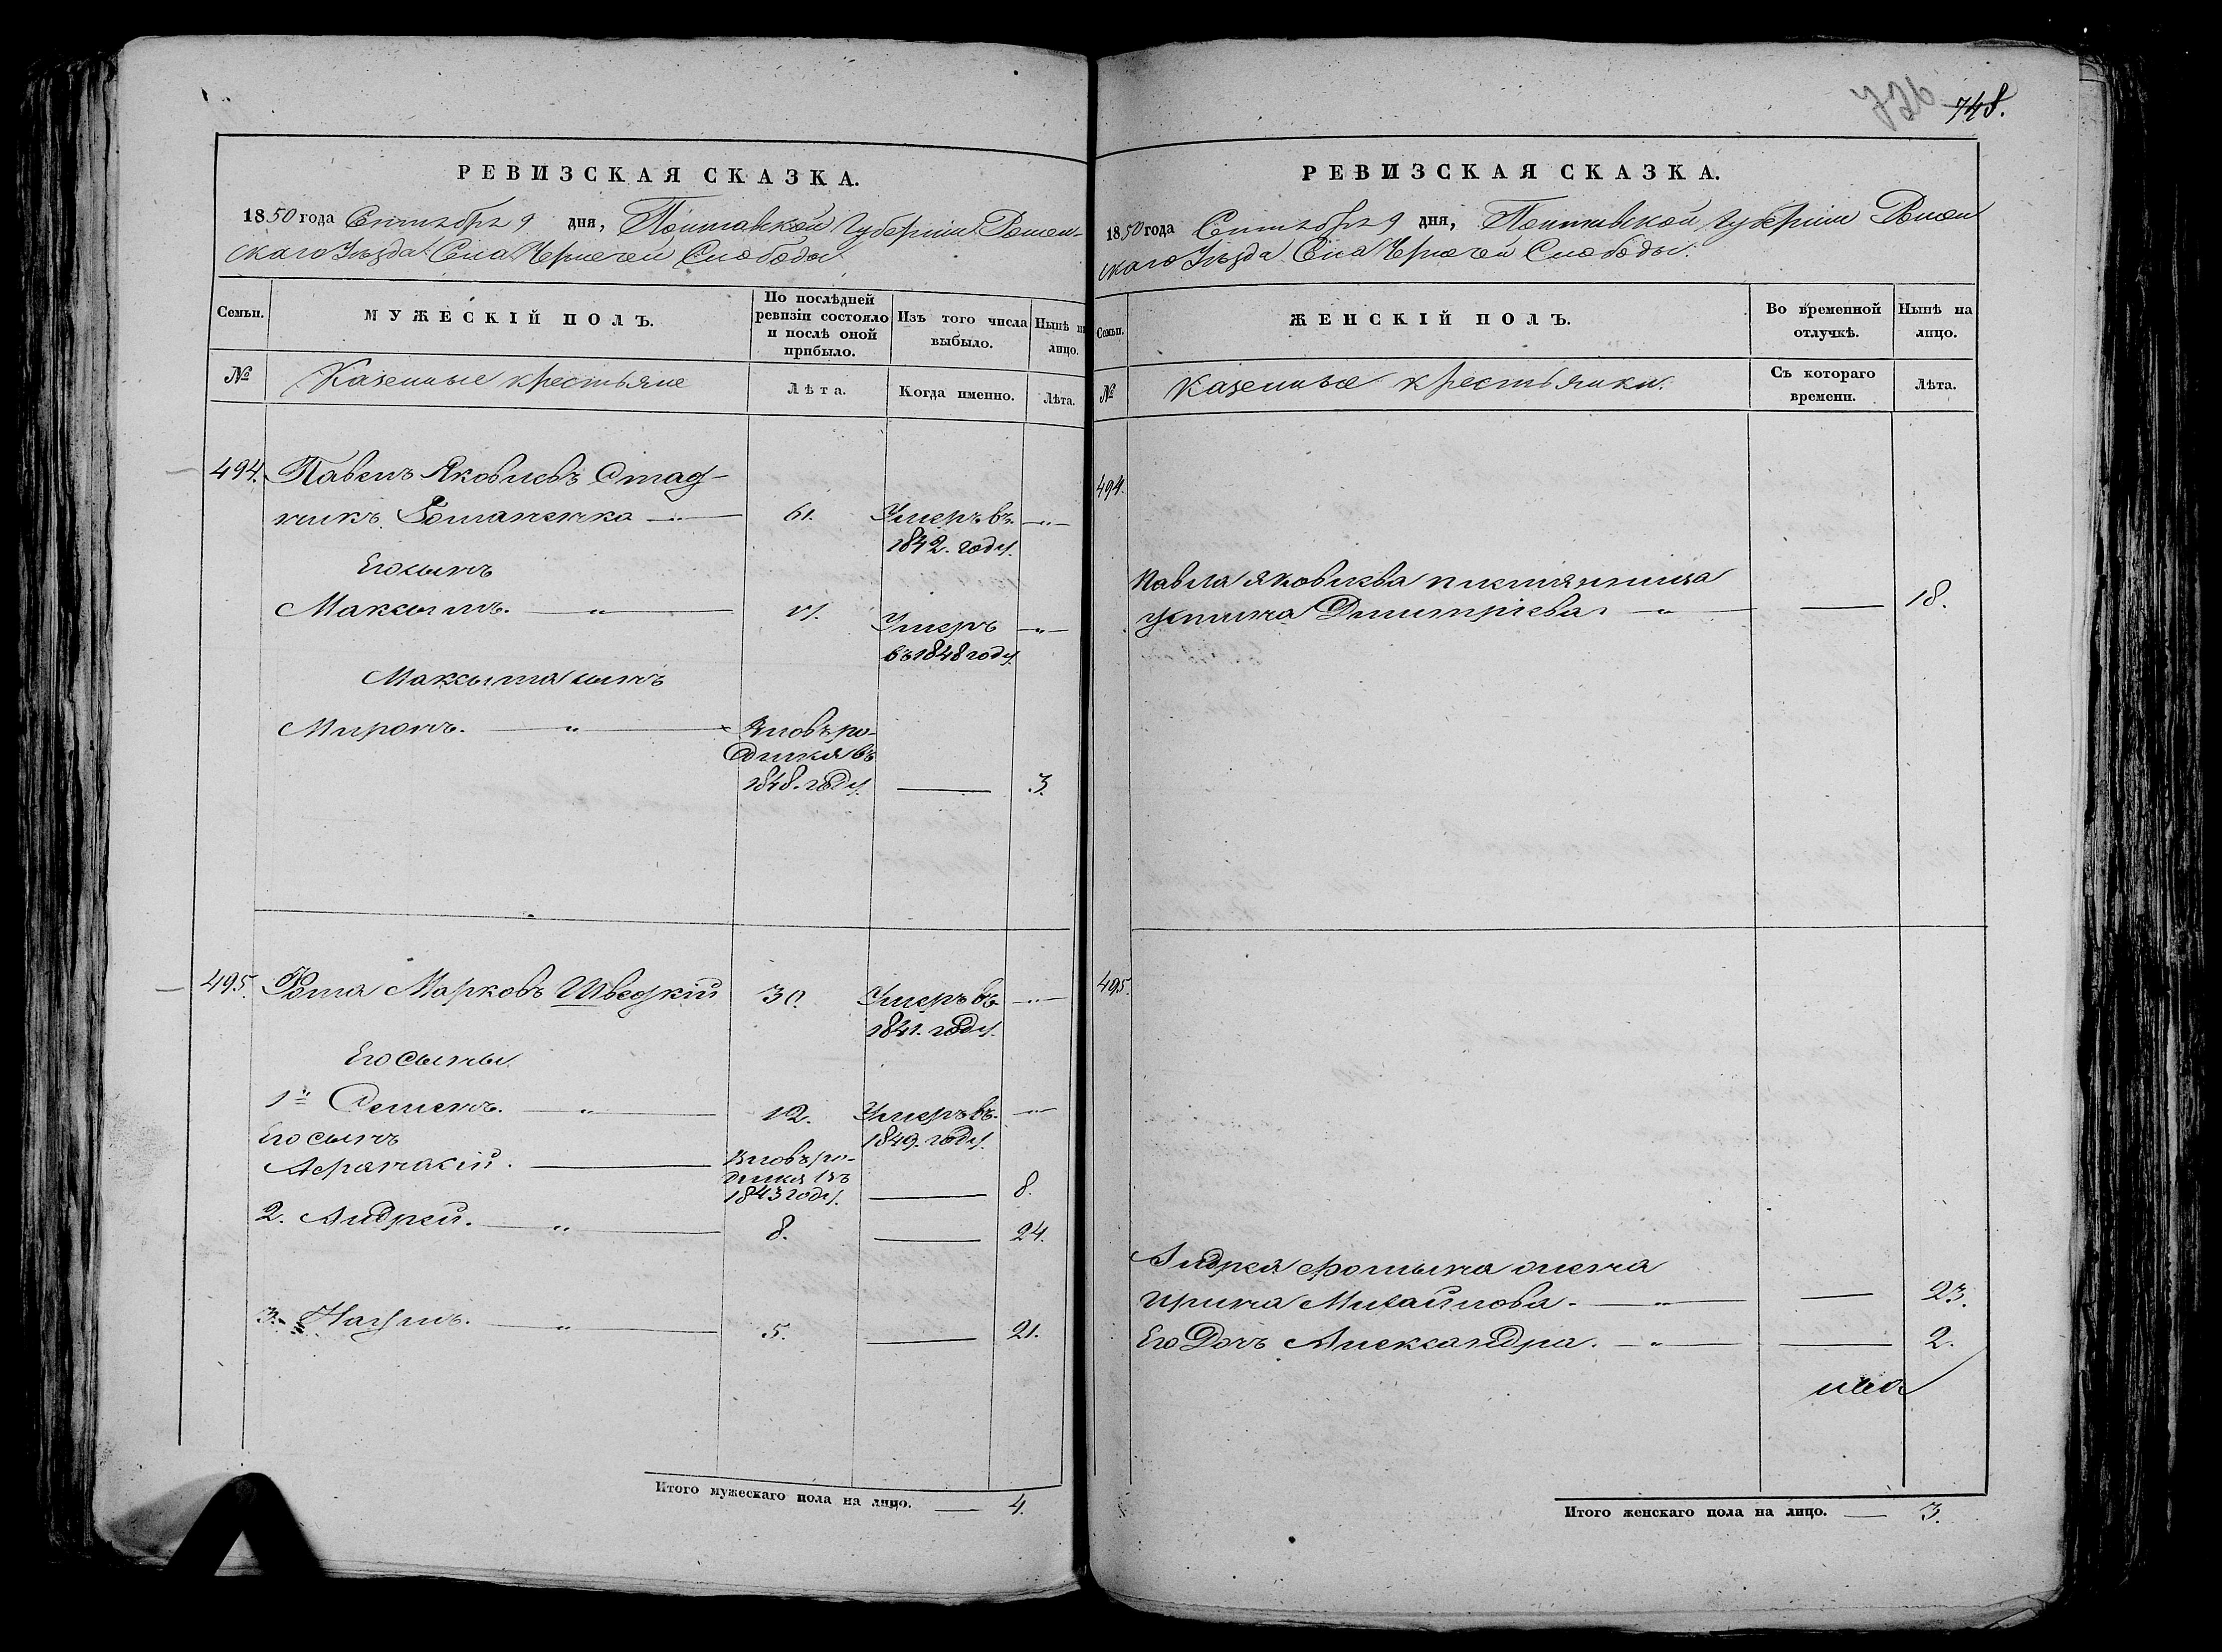 РЕВИЗСКАЯ СКАЗКА.
1850 года Сентября 9 дня, Полтавской Губерніи Ромен-
скаго Уѣзда Села Чернечей Слободы.
Семьи.
МУЖЕСКІЙ ПОЛЪ.
По послѣдней ревизіи состояло и послѣ оной прибыло.
Изъ того числа выбыло.
Нынѣ на лицо.
№
Казенные крестьяне
Лѣта.
Когда именно.
Лѣта.
494. Павелъ Яковлевъ Стад-
никъ Романенко —„— 61. Умеръ въ 1842. году. —„—
Его сынъ
Максимъ. —„— Умеръ въ 1848 году. —„—
Максима сынъ
Миронъ. —„— Вновь родился въ 1848. году. — 3.
495. Фома Марковъ Шведкій 30. Умеръ въ 1841. году. —„—
Его сыны
1й Семенъ. —„— 12. Умеръ въ 1849. году. —„—
Его сынъ
Афанасій. — Вновь родился въ 1843 году. — 8.
2. Андрей. —„— 8. — 24.
3. Наумъ. —„— 5. — 21.
Итого мужескаго пола на лицо. — 4.
726 748.
РЕВИЗСКАЯ СКАЗКА.
1850 года Сентября 9 дня, Полтавской Губерніи Ромен
скаго Уѣзда Села Чернечей Слободы.
Семьи.
ЖЕНСКІЙ ПОЛЪ.
Во временной отлучкѣ.
Нынѣ на лицо.
№
Казенные крестьянки.
Съ котораго времени.
Лѣта.
494.
Павла Яковлева племянница
Устина Дмитріева. —„— — 18.
495.
Андрея Фомина жена
Ирина Михайлова. —„— — 23.
Его Дочь Александра. —„— — 2.
Итого женскаго пола на лицо. — 3.